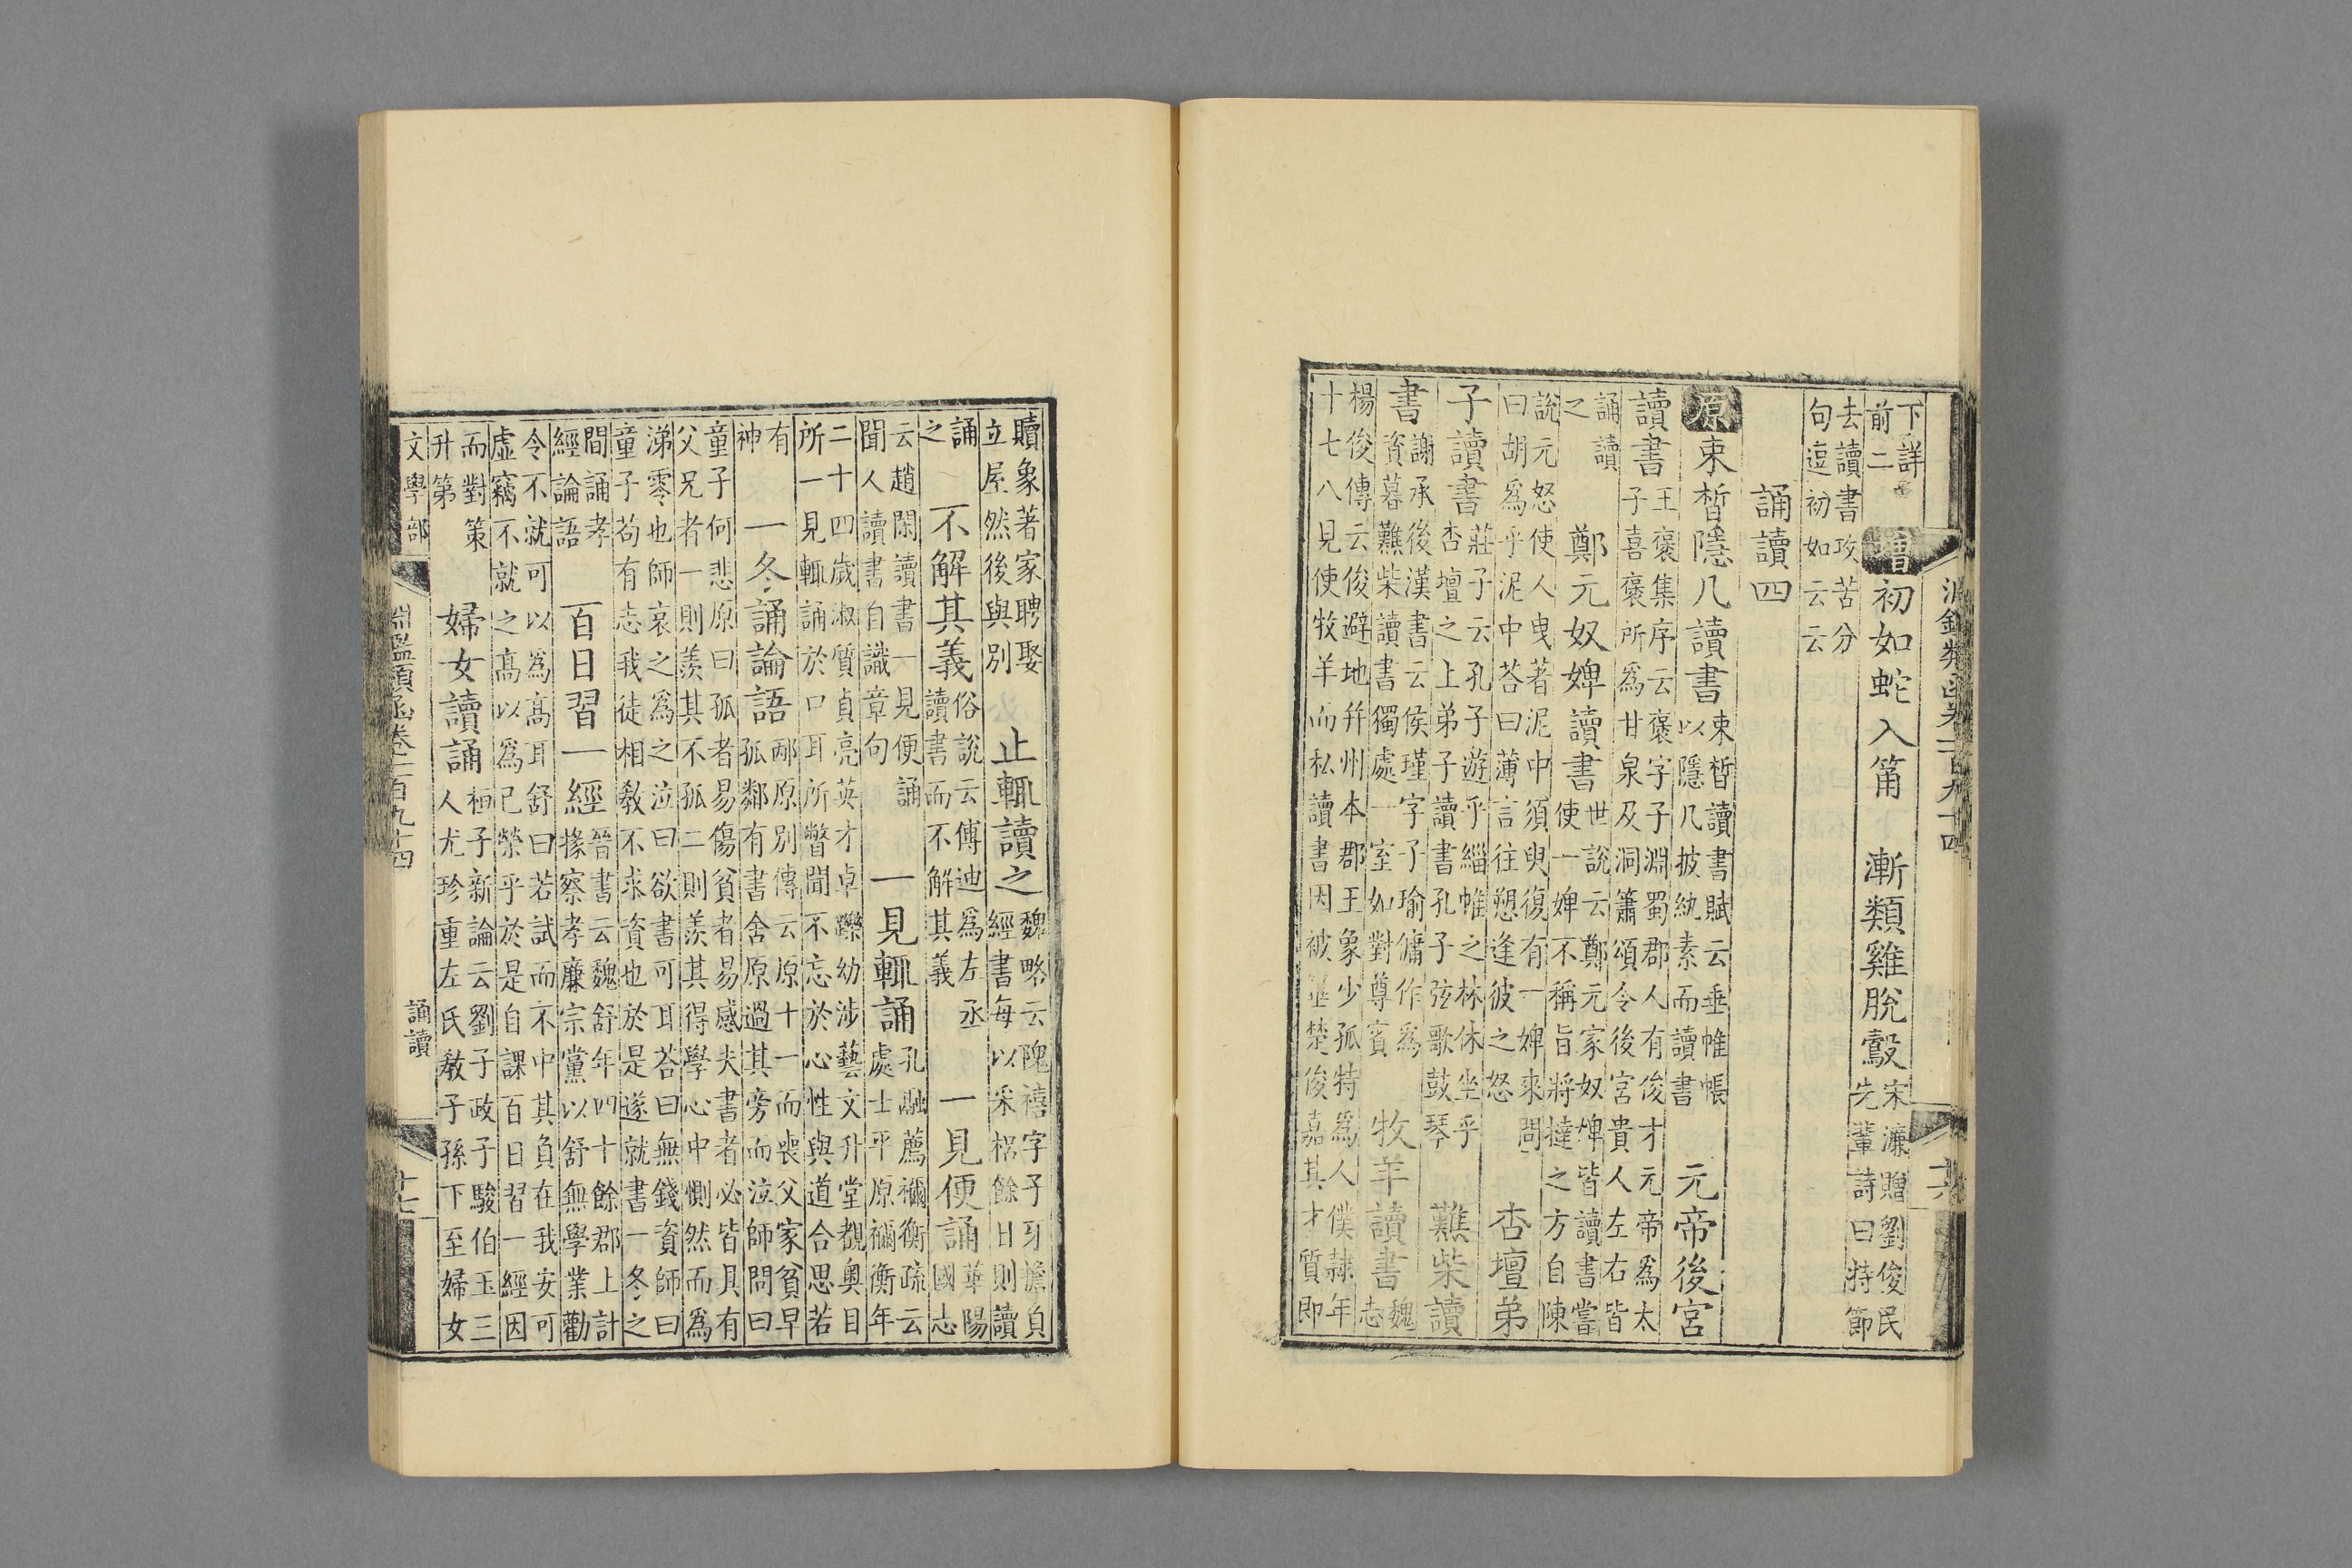 淵鑑類函卷一百九十四 十六
下詳
前二
增初如蛇入筩 漸類雞脫鷇
宋濂贈劉俊民
先輩詩曰持節
去讀書攻苦分
句逗初如云云
誦讀四
原束晳隱几讀書
束晳讀書賦云垂帷帳
以隱几披紈素而讀書
元帝後宮
讀書
王褒集序云褒字子淵蜀郡人有俊才元帝爲太
子喜褒所爲甘泉及洞簫頌令後宮貴人左右皆
誦讀
之
鄭元奴婢讀書
世說云鄭元家奴婢皆讀書嘗
使一婢不稱旨將撻之方自陳
說元怒使人曳著泥中須臾復有一婢來問
曰胡爲乎泥中荅曰薄言往愬逢彼之怒
杏壇弟
子讀書
莊子云孔子遊乎緇帷之林休坐乎
杏壇之上弟子讀書孔子弦歌鼓琴
㸐柴讀
書
謝承後漢書云侯瑾字子瑜傭作爲
資暮㸐柴讀書獨處一室如對尊賓
牧羊讀書
魏
志
楊俊傳云俊避地幷州本郡王象少孤特爲人僕隸年
十七八見使牧羊而私讀書因被箠楚俊嘉其才質即
贖象著家聘娶
立屋然後與別
止輒讀之
魏略云隗禧字子牙擔負
經書每以采梠餘日則讀
誦
之
不解其義
俗說云傅迪爲左丞
讀書而不解其義
一見便誦
華陽
國志
云趙閑讀書一見便誦
聞人讀書自識章句
一見輒誦
孔融薦禰衡疏云
處士平原禰衡年
二十四歲淑質貞亮英才卓躒幼涉藝文升堂覩奧目
所一見輒誦於口耳所瞥聞不忘於心性與道合思若
有
神
一冬誦論語
邴原別傳云原十一而喪父家貧早
孤鄰有書舍原過其旁而泣師問曰
童子何悲原曰孤者易傷貧者易感夫書者必皆具有
父兄者一則羨其不孤二則羨其得學心中惻然而爲
涕零也師哀之爲之泣曰欲書可耳荅曰無錢資師曰
童子苟有志我徒相敎不求資也於是遂就書一冬之
間誦孝
經論語
百日習一經
晉書云魏舒年四十餘郡上計
掾察孝廉宗黨以舒無學業勸
令不就可以爲高耳舒曰若試而不中其負在我安可
虛竊不就之高以爲己榮乎於是自課百日習一經因
而對策
升第
婦女讀誦
桓子新論云劉子政子駿伯玉三
人尤珍重左氏敎子孫下至婦女
文學部 淵鑑類函卷一百九十四 誦讀 十七